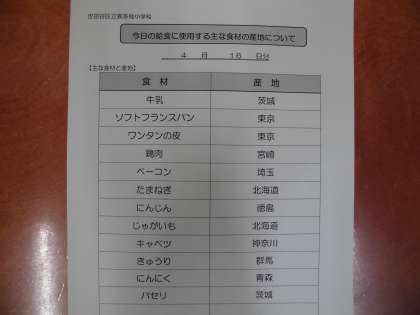 今日の給食に使用する主な食材の産地について
4 月 16 日分
【主な食材と産地】
食材 産地
牛乳 茨城
ソフトフランスパン 東京
ワンタンの皮 東京
鶏肉 宮崎
ベーコン 埼玉
たまねぎ 北海道
にんじん 徳島
じゃがいも 北海道
キャベツ 神奈川
きゅうり 群馬
にんにく 青森
パセリ 茨城